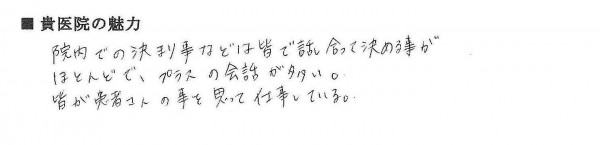 ■ 貴医院の魅力
院内での決まり事などは皆で話し合って決める事が
ほとんどで、プラスの会話が多い。
皆が患者さんの事を思って仕事している。